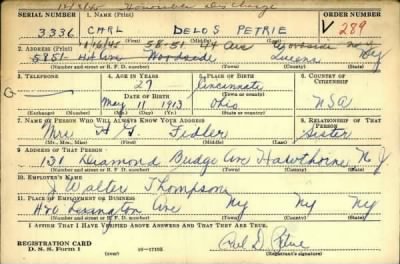 12/3/45 Honorable Discharge
SERIAL NUMBER 1. NAME (Print) ORDER NUMBER
3336 CARL DELOS PETRIE V 289
(First) (Middle) (Last)
2. ADDRESS (Print) 11/16/45 58-51 44 Ave Woodside
5851-44 Ave Woodside Queens NY
(Number and street or R. F. D. number) (Town) (County) (State)
3. TELEPHONE 4. AGE IN YEARS 5. PLACE OF BIRTH 6. COUNTRY OF CITIZENSHIP
27 Cincinnati
DATE OF BIRTH
May 11 1913 Ohio USA
(Exchange) (Number) (Mo.) (Day) (Yr.) (Town or county) (State or country)
7. NAME OF PERSON WHO WILL ALWAYS KNOW YOUR ADDRESS 8. RELATIONSHIP OF THAT PERSON
Mrs Fidler Sister
(Mr., Mrs., Miss) (First) (Middle) (Last)
9. ADDRESS OF THAT PERSON
131 Diamond Bridge Ave Hawthorne N J
(Number and street or R. F. D. number) (Town) (County) (State)
10. EMPLOYER'S NAME
J Walter Thompson
11. PLACE OF EMPLOYMENT OR BUSINESS
420 Lexington Ave NY NY NY
(Number and street or R. F. D. number) (Town) (County) (State)
I AFFIRM THAT I HAVE VERIFIED ABOVE ANSWERS AND THAT THEY ARE TRUE.
REGISTRATION CARD
D. S. S. Form 1 16-17105 Carl D. Petrie
(over) (Registrant's signature)